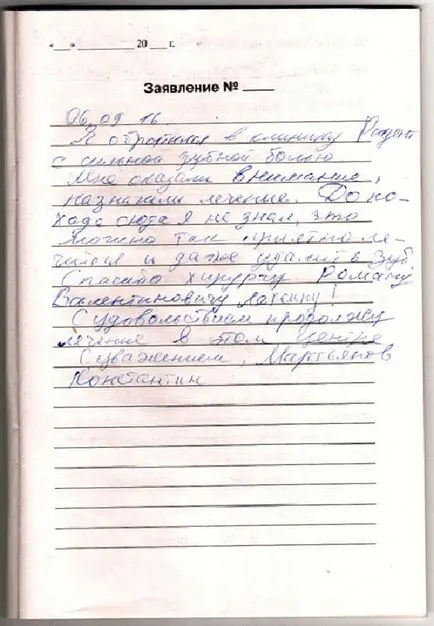 «___»__________20___ г.
Заявление № ____
06.09 16.
Я обратился в клинику Радент
с сильной зубной болью
Мне оказали внимание,
назначили лечение. До по-
хода сюда я не знал, что
можно так приятно ле-
читься и даже удалить зуб
Спасибо хирургу Роману
Валентиновичу !
С удовольствием продолжу
лечение в этом центре
С уважением, Мартьянов
Константин